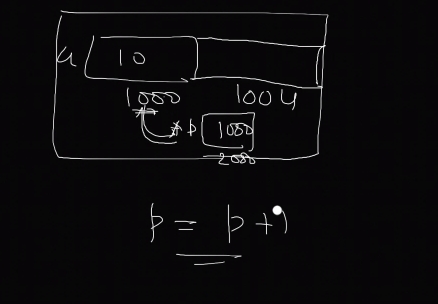 a 10
1000 1004
*p 1000
2000
p = p + 1